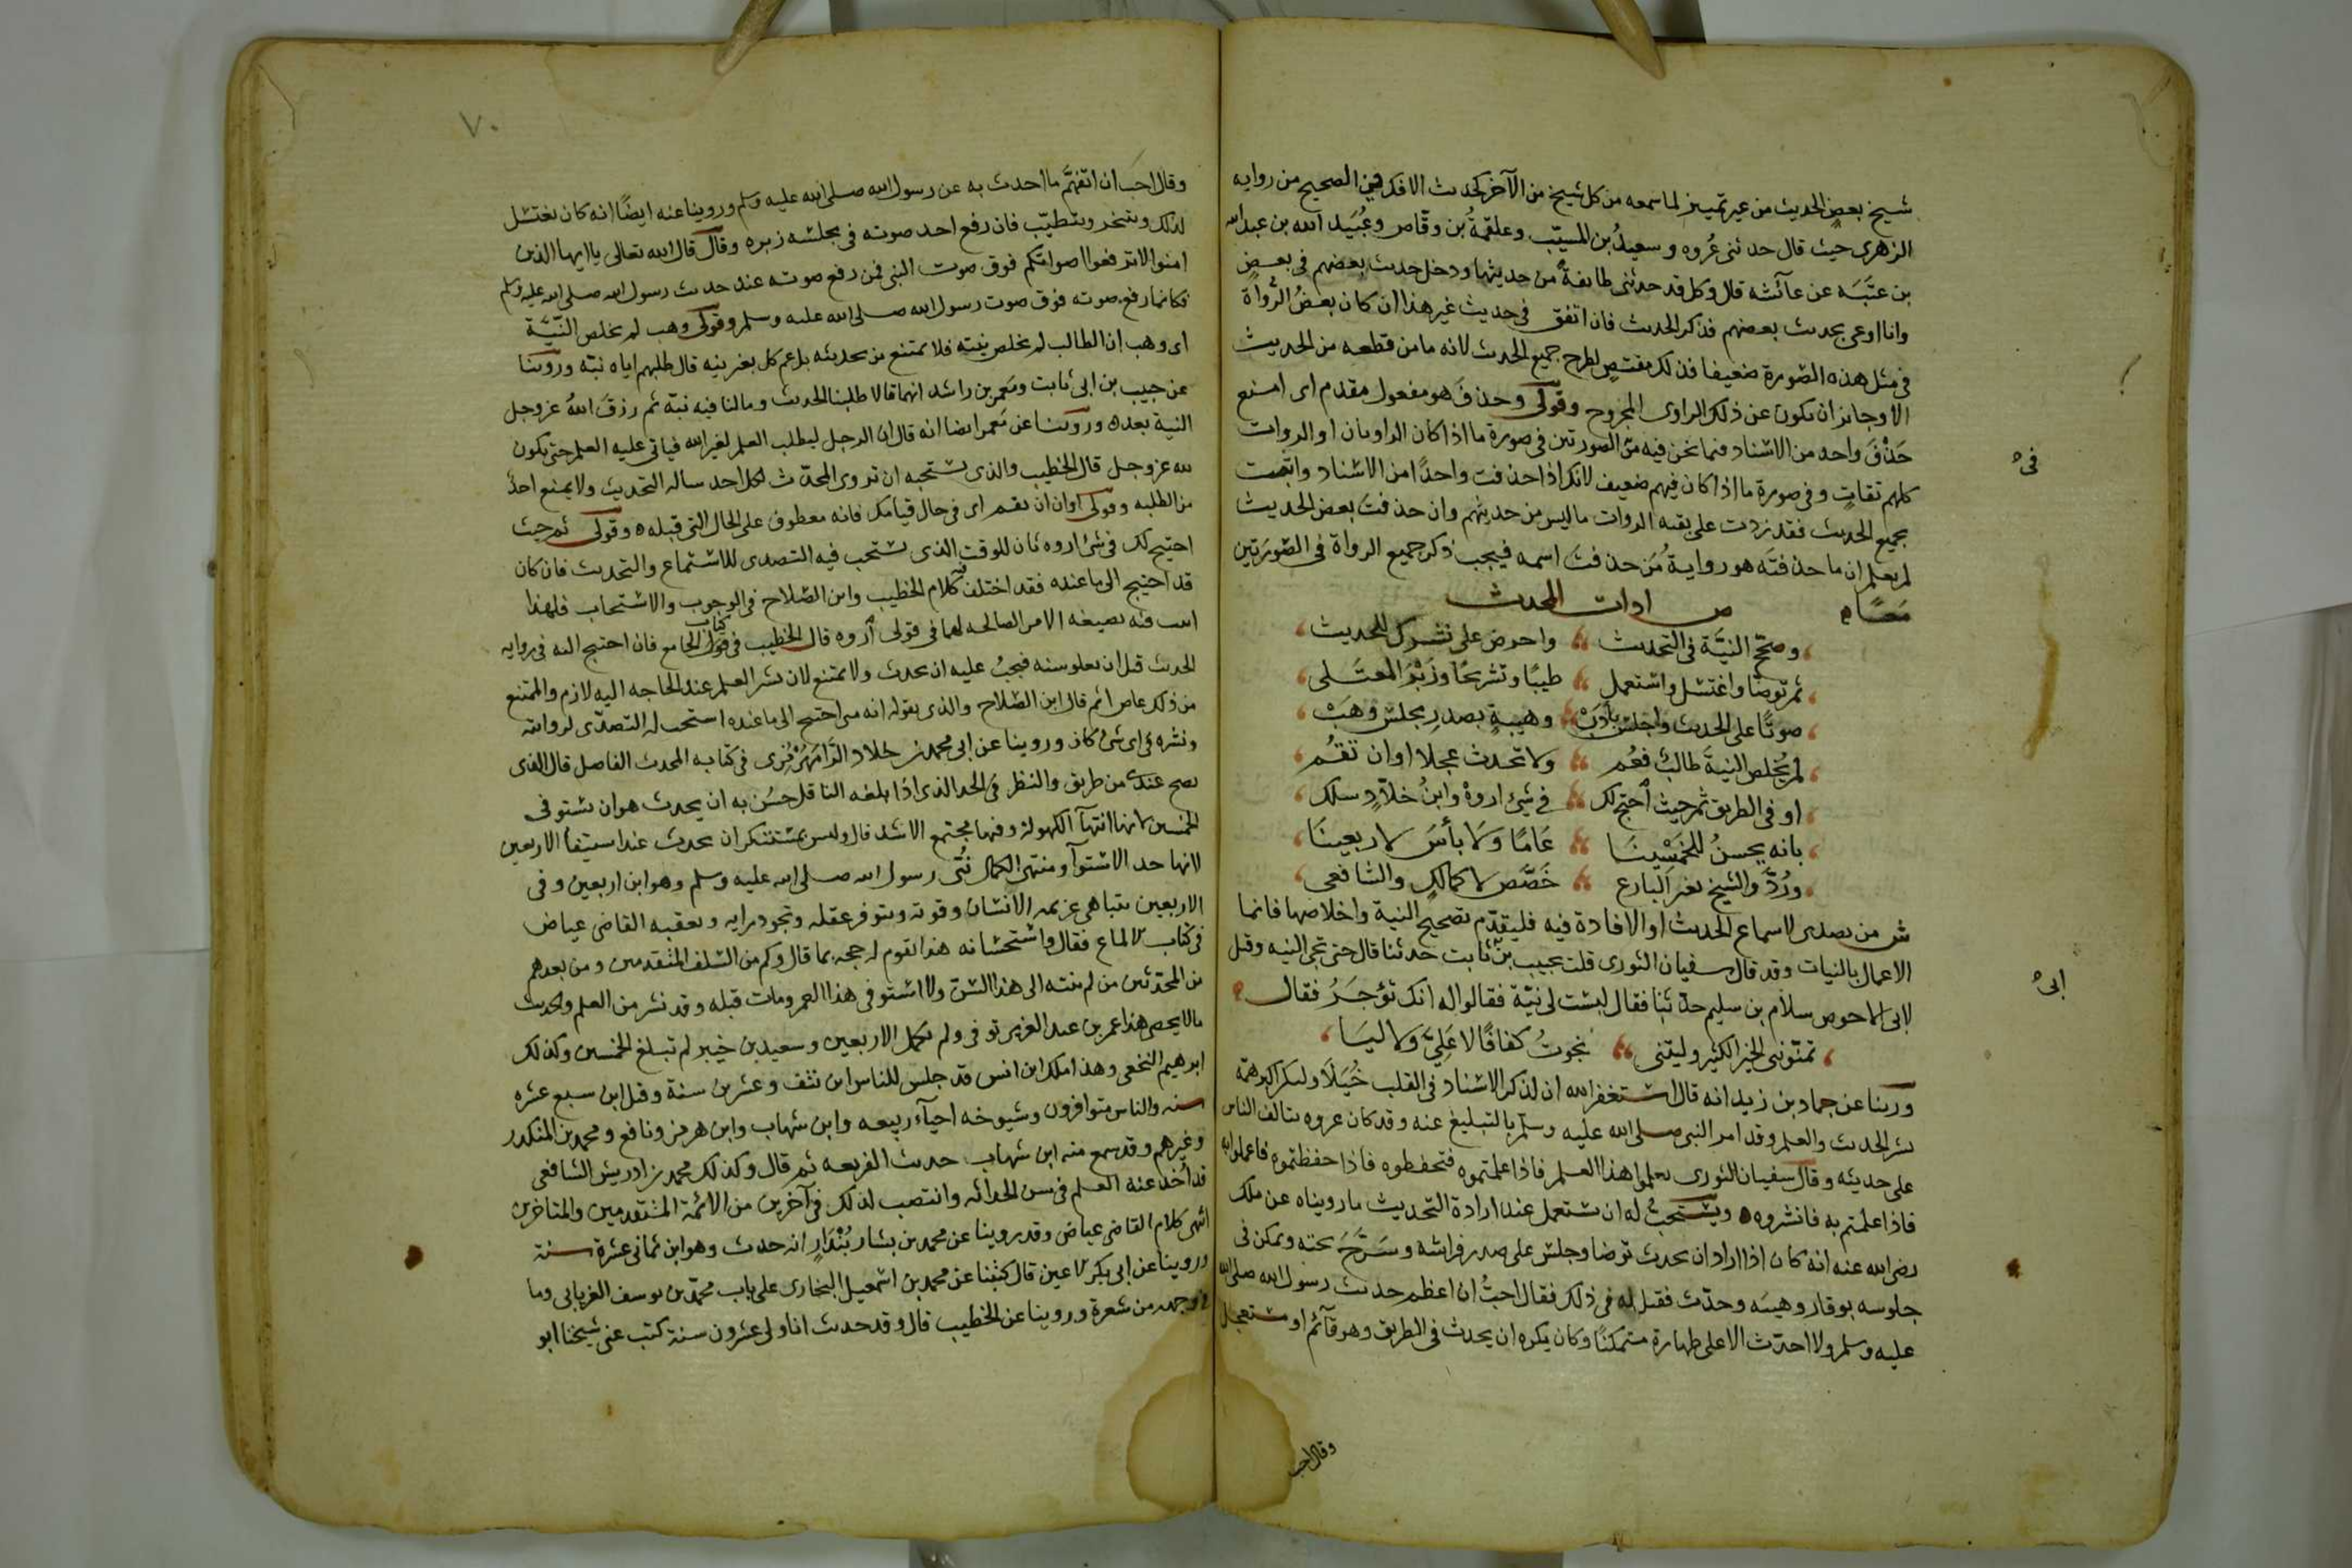 شيخ بعض الحديث من غير تمييز لما سمعه من كل شيخ من الآخر كحديث الافك في الصحيح من رواية
الزهري حيث قال حدثني عُروه وسعيدُ بن المسيّب وعلقمةُ بن وقّاص وعُبَيد الله بن عبد الله
بن عتبَه عن عآئشه قال وكل قد حدثني طايفةٌ من حديثها ودخل حديث بعضهم في بعض
وانا اوعى بحديث بعضهم فذكر الحديث فان اتفق في حديث غير هذا ان كان بعضُ الرُّواة
في مثل هذه الصّورة ضعيفا فذلك مقتضٍ لطرح جميع الحديث لانه ما من قطعه من الحديث
الا وجايز ان تكون عن ذلك الراوى المجروح وقولى وحذفَ هو مفعول مقدم اى امنع
حَذْفَ واحد من الاسناد فيما نحن فيه من الصورتين في صورة ما اذا كان الراويان او الروات
كلهم ثقاتٍ وفي صورة ما اذا كان فيهم ضعيف لانك اذا حذفت واحدًا من الاسناد واتيت
بجميع الحديث فقد زدت على بقيه الروات ما ليس من حديثهم وان حذفتَ بعض الحديث
لم يعلم ان ما حذفتَه هو روايةُ مَن حذفتَ اسمه فيجب ذكر جميع الرواة في الصّورَتين
مَعًا ه ص اداب المحدث
وصحّح النيَّة في التحديث واحرص على نشرك للحديث
ثم توضّا واغتسل واستعمل طيبًا وتسريحًا وزَبْرَ المعتَلى
صوتًا على الحديث واجلس بأدَبْ وهيبةٍ بصدرِ مجلس وهَبْ
لم يُخلص النيةَ طالبٌ فعُم ولا تحدث عجلا او ان تقُم
او في الطريق ثم حيث احتج لك في شئ اروهْ وابنُ خلّادٍ سلك
بانه يحسنُ للخَمْسينَا عَامًا وَلَا بأسَ لاربعينَا
ورُدَّ والشيخ بغير البارع خَصَّص لا كمالكٍ والشافعى
ش من تصدى لاسماع الحديث او الافادة فيه فليقدّم تصحيح النية واخلاصها فانما
الاعمال بالنيات وقد قال سفيان الثورى قلت لحبيب بن ابى ثابت حدثنا قال حتى تجى النيه وقيل
لابى الاحوص سلّام بن سليم حدّثنا فقال ليست لى نيّة فقالوا له انك تؤجَرُ فقال
تمنّونى الخير الكثير وليتنى نجوتُ كفافًا لا عَليَّ وَلا ليَا
وروينا عن حماد بن زيد انه قال استغفر الله ان لذكر الاسناد في القلب خُيَلَاء وليكن اكبر همّه
نشر الحديث والعلم وقد امر النبى صلى الله عليه وسلم بالتبليغ عنه وقد كان عروه يتالف الناس
على حديثه وقال سفيان الثورى تعلموا هذا العلم فاذا علمتموه فتحفظوه فاذا حفظتموه فاعملوا به
فاذا عملتم به فانشروه ويستحبُّ له ان يستعمل عند ارادة التحديث ما رويناه عن ملك
رضى الله عنه انه كان اذا اراد ان يحدث توضا وجلس على صدر فراشه وسَرَّحَ لحيته وتمكن في
جلوسه بوقار وهيبَه وحدّث فقيل له في ذلك فقال احبُّ ان اعظم حديث رسول الله صلى الله
عليه وسلم ولا احدّث الا على طهارة متمكنًا وكان يكره ان يحدث في الطريق وهو قآئم او مستعجل
وقال احب
في
ابى
٧٠
وقال احب ان اتفهَّم ما احدث به عن رسول الله صلى الله عليه وسلم وروينا عنه ايضًا انه كان يغتسل
لذلك ويتبخر ويتطيّب فان رفع احد صوته في مجلسه زبره وقال قال الله تعالى يا ايها الذين
امنوا لا ترفعوا اصواتكم فوق صوت النبى فمن رفع صوته عند حديث رسول الله صلى الله عليه وسلم
فكانما رفع صوته فوق صوت رسول الله صلى الله عليه وسلم وقولى وهب لم يخلص النّيّة
اى وهب ان الطالب لم يخلص نيته فلا يمتنع من تحديثه بل عم كل قال طلبهم اياه نيّه وروينا
عن حبيب بن ابى ثابت ومَعمر بن راشد انهما قالا طلبنا الحديث وما لنا فيه نيّه ثم رزقَ اللهُ عز وجل
النية بعده وروينا عن مَعمر ايضا انه قال ان الرجل ليطلب العلم لغير الله فيابى عليه العلم حتى يكون
لله عز وجل قال الخطيب والذى نستحبه ان يروى المحدّث لكل احد ساله التحديث ولا يمنع احدًا
من الطلبه وقولى او ان تقم اى في حال قيامك فانه معطوف على الحال التى قبله ه وقولى ثم حيث
احتيج لك في شئ اروه بَان للوقت الذى يستحب فيه التصدى للاستماع والتحديث فان كان
قد احتيج الى ما عنده فقد اختلف فيه كلام الخطيب وابن الصّلاح في الوجوب والاستحباب فلهذا
اتيت فيه بصيغه الامر الصالحه لهما في قولى اروه قال الخطيب في كتاب الجامع فان احتيج اليه في روايه
الحديث قبل ان تعلو سنه فيجبُ عليه ان يحدث ولا يمتنع لان نشر العلم عند الحاجه اليه لازم والممتنع
من ذلك عاص اثم قال ابن الصّلاح والذى نقوله انه متى احتيج الى ما عنده استحب له التصدّى لروايته
ونشره في اى سنّ كان وروينا عن ابى محمد بن خلاد الرَّامَهُرْمُزى في كتابه المحدث الفاصل قال الذى
يصح عندى من طريق والنظر في الحد الذى اذا بلغه الناقل حسُن به ان يحدث هو ان يستوفى
الخمسين لانها انتهآ الكهولة وفيها مجتمع الاشد قال وليس بمستنكر ان يحدث عند استيفآ الاربعين
لانها حد الاستوآ ومنتهى الكمال نُبّئ رسول الله صلى الله عليه وسلم وهو ابن اربعين وفي
الاربعين تتناهى عزيمه الانسان وقوته ويتوفر عقله وتجود رايه وتعقبه القاضى عياض
في كتاب الالماع فقال واستحسانه هذا لا يقوم له حجه بما قال وكم من السّلف المتقدمين ومن بعدهم
من المحدّثين من لم ينته الى هذا السّن ولا استوفى هذا العمر ومات قبله وقد نشر من العلم والحديث
ما لا يحصى هذا عمر بن عبد العزيز توفى ولم يكمل الاربعين وسعيد بن جبير لم يبلغ الخمسين وكذلك
ابرهيم النخعى وهذا ملك ابن انس قد جلس للناس ابن نيّف وعشرين سنة وقيل ابن سبع عشره
سنه والناس متوافرون وشيوخه احيآء ربيعه وابن شهاب وابن هرمز ونافع ومحمد بن المنكدر
وغيرهم وقد سمع منه ابن شهاب حديث الفريعه ثم قال وكذلك محمد بن ادريس الشافعى
قد اُخذ عنه العلم في سن الحداثه وانتصب لذلك في آخرين من الائمّة المتقدمين والمتاخرين
انتهى كلام القاضى عياض وقد روينا عن محمد بن بشار بُنْدَارٍ انه حدث وهو ابن ثمانى عشرة سنة
وروينا عن ابى بكر الاعين قال كتبنا عن محمد بن اسمعيل البخارى على باب محمّد بن يوسف الفريابى وما
في وجهه من شعرة وروينا عن الخطيب قال وقد حدثت انا ولى عشرون سنة كتب عنى شيخنا ابو